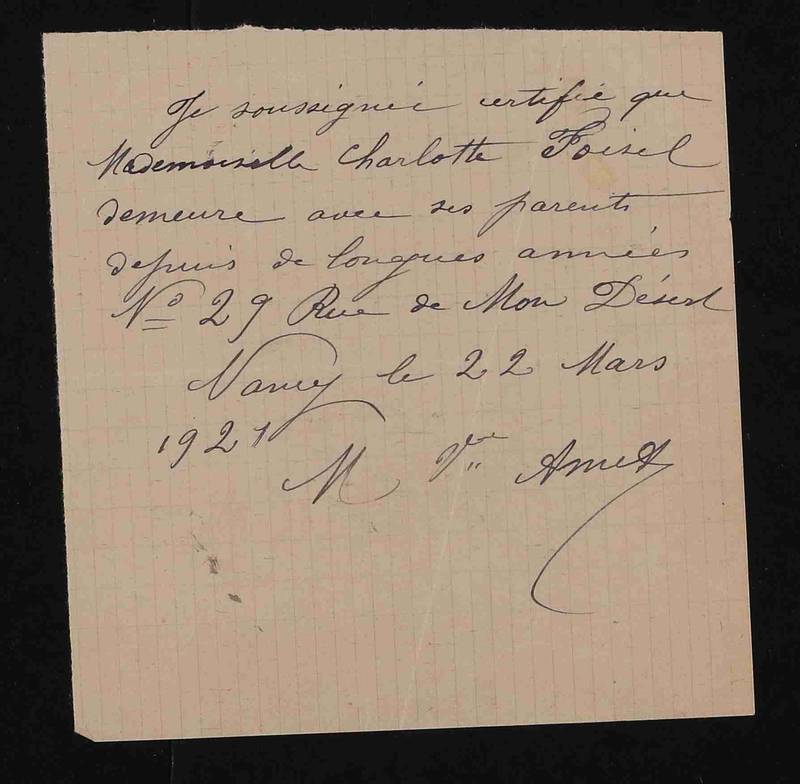 Je soussignée certifie que
Mademoiselle Charlotte Foisel
demeure avec ses parents
depuis de longues années
No 29 Rue de Mon Désert
Nancy le 22 Mars
1921
M Vve Amet